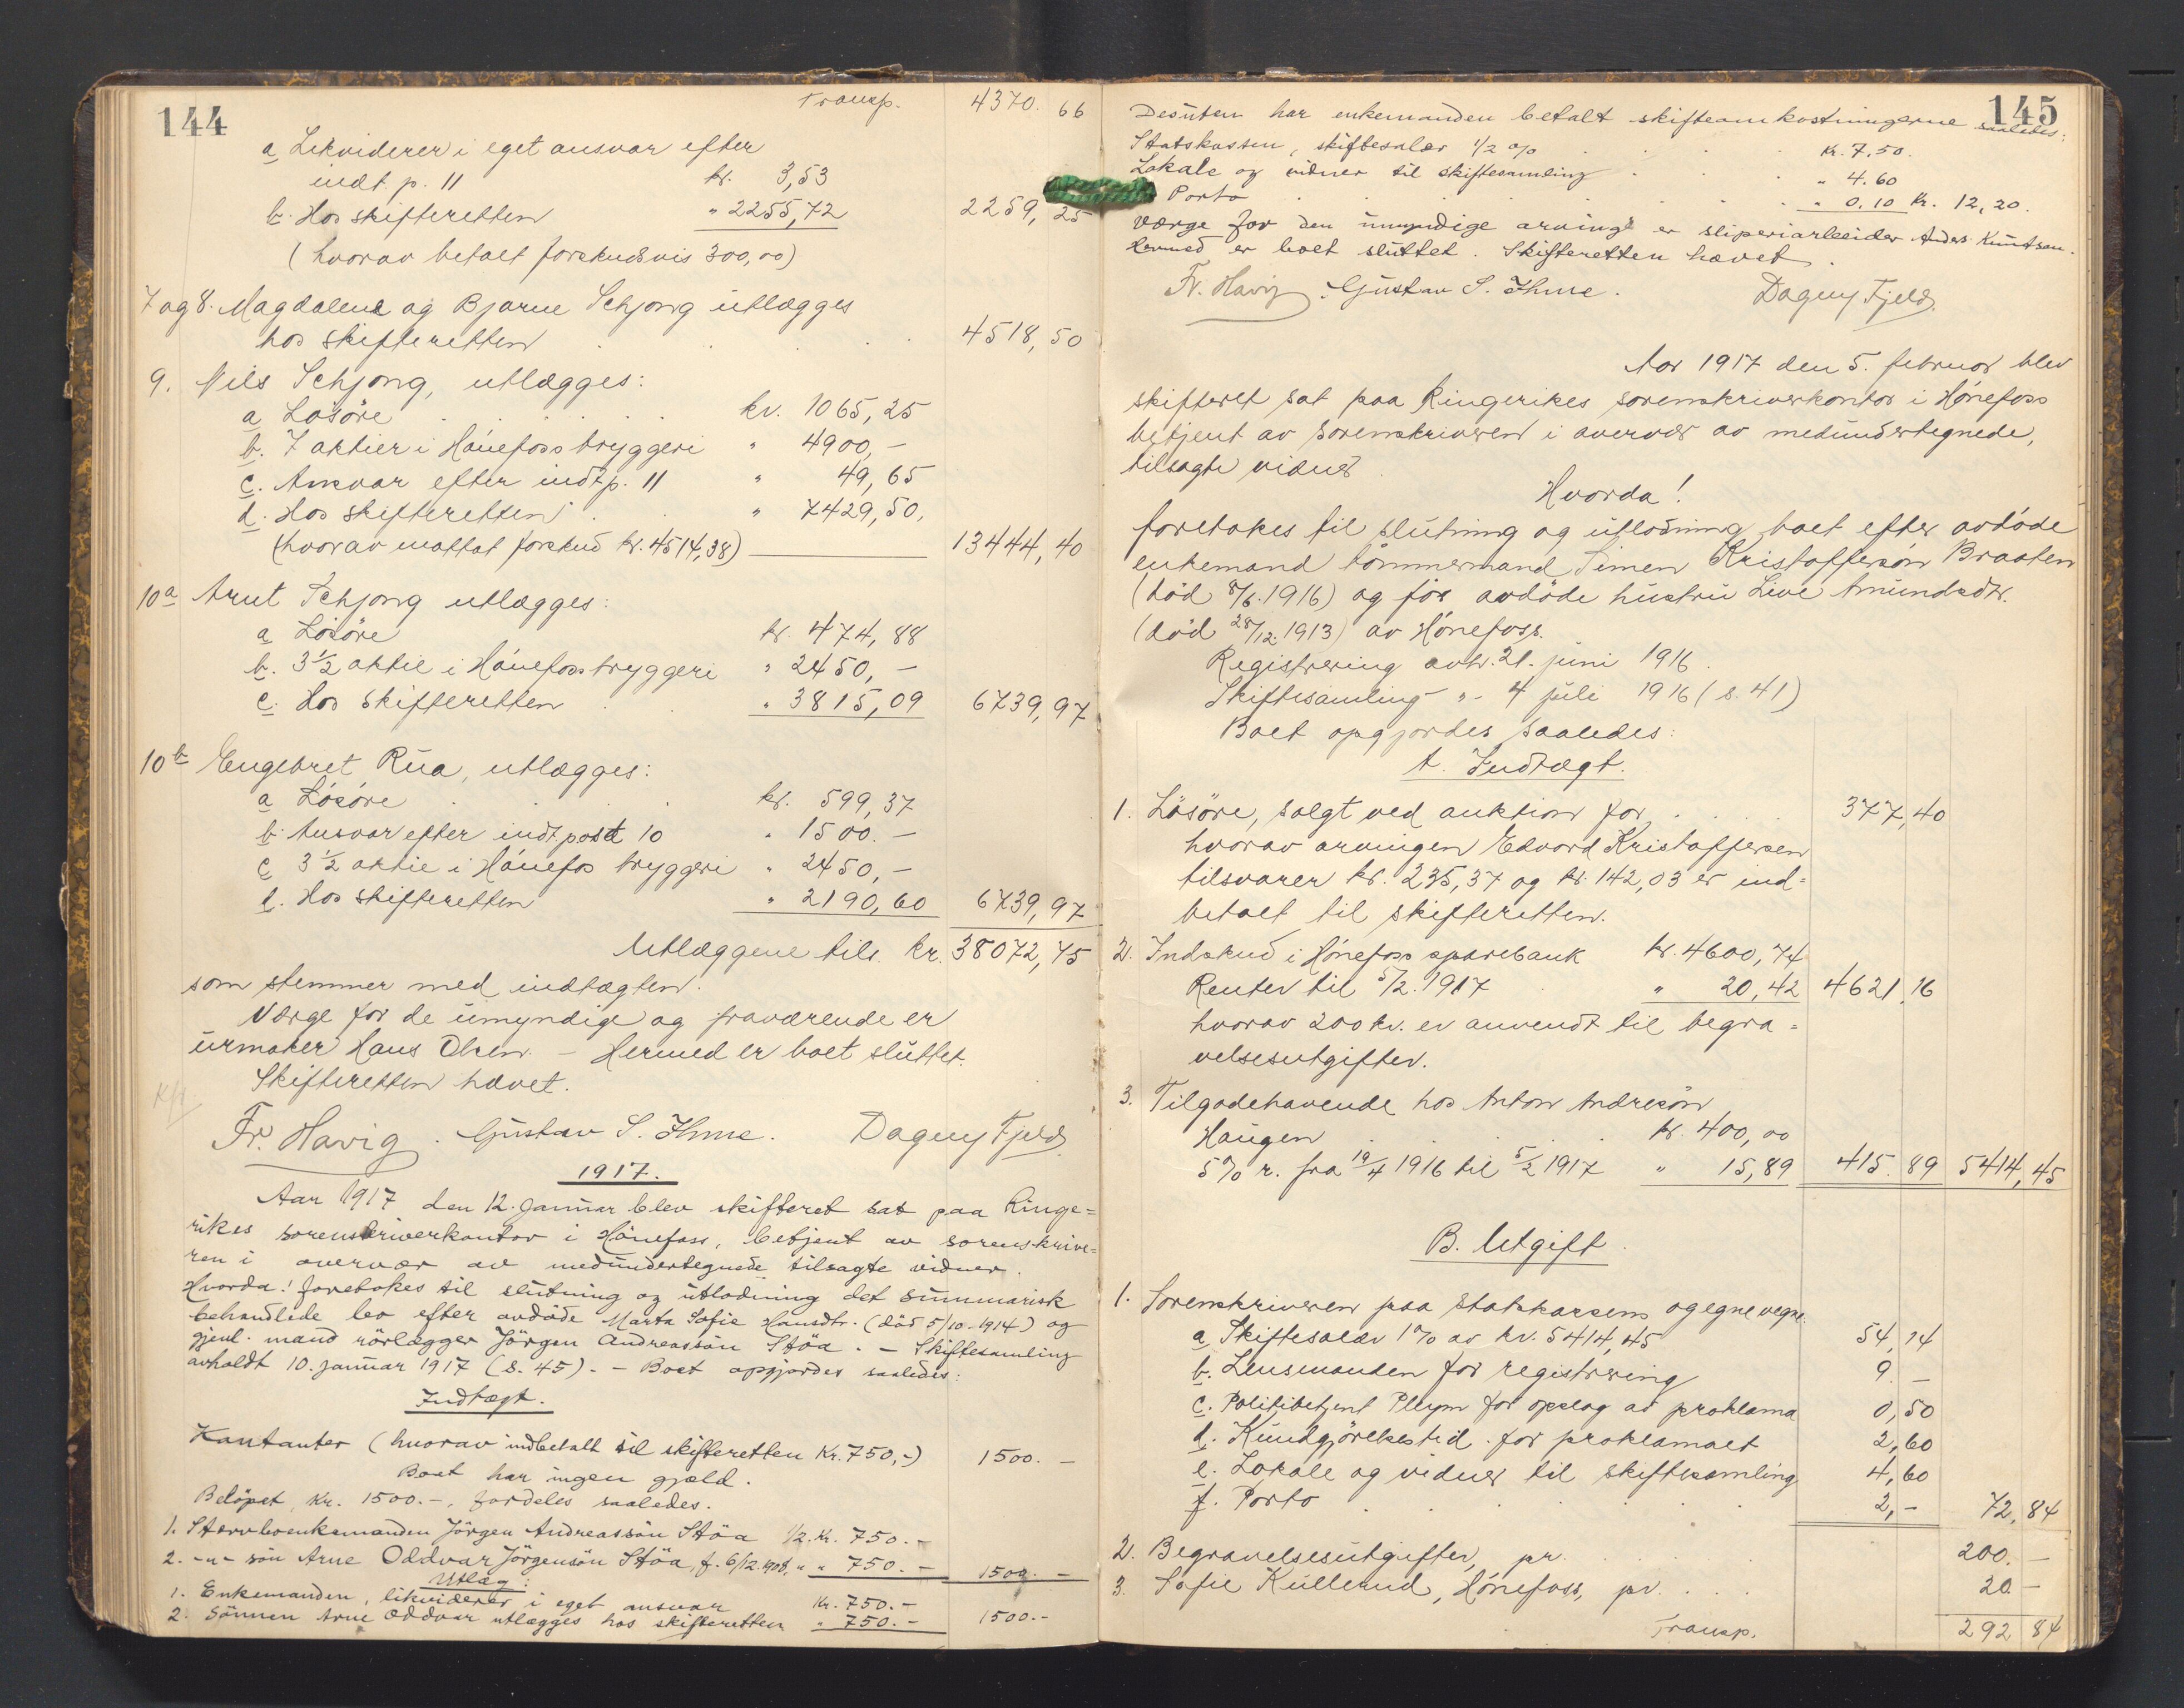 144
Transp. 4370. 66
a Likviderer i eget ansvar efter
indt. p. 11 kr. 3,53
b. Hos skifteretten " 2255,72 2259,25
(hvorav betalt forskudsvis 300,00)
7 og 8. Magdalena og Bjarne Schjong utlægges
hos skifteretten . . . . 4518,50
9. Nils Schjong, utlægges:
a Løsøre . . . . . . kr. 1065,25
b. 7 aktier i Hönefoss bryggeri " 4900,-
c. Ansvar efter indt p. 11 " 49,65
d. Hos skifteretten . . " 7429,50,
(hvorav mottat forskud kr. 4514,38) 13444,40
10a Arnt Schjong utlægges:
a Lösöre kr. 474,88
b. 3½ aktie i Hönefoss bryggeri " 2450,-
c. Hos skifteretten . . " 3815,09 6739,97
10b Engebret Rua, utlægges:
a Lösöre . . . . kr. 599,37
b. Ansvar efter indt. post 10 " 1500.-
c 3½ aktie i Hönefos bryggeri " 2450,-
d. Hos skifteretten " 2190,60 6739,97
Utlæggene tils. kr. 38072,75
som stemmer med indtægten.
Værge for de umyndige og fraværende er
urmaker Hans Olsen. - Hermed er boet sluttet.
Skifteretten hævet.
Fr. Havig. Gustav S. Ihme. Dagny Fjeld
1917.
Aar 1917 den 12. januar blev skifteret sat paa Ringe=
rikes sorenskriverkontor i Hönefoss, betjent av sorenskrive=
ren i overvær av medundertegnede tilsagte vidner.
Hvorda! foretokes til slutning og utlodning det summarisk
behandlede bo efter avdöde Marta Sofie Hansdtr. (död 5/10-1914) og
gjenl. mand rörlægger Jörgen Andreassön Stöa. - Skiftesamling
avholdt 10. januar 1917 (s. 45). - Boet opgjordes saaledes:
Indtægt.
Kontanter (hvorav indbetalt til skifteretten Kr. 750,-) 1500.-
Boet har ingen gjæld.
Belöpet, Kr. 1500.-, fordeles saaledes.
1. Stervboenkemanden Jörgen Andreassön Stöa ½. Kr. 750.-
2. -"- sön Arne Oddvar Jörgensön Stöa, f. 6/12.1908, " " 750.- 1500.-
Utlæg:
1. Enkemanden, likviderer i eget ansvar Kr. 750.-
2. Sönnen Arne Oddvar utlægges hos skifteretten " 750.- 1500.-
145
Desuten har enkemanden betalt skifteomkostningerne saaledes:
Statskassen, skiftesalær ½ % . . . . Kr. 7.50.
Lokale og vidner til skiftesamling . . . " 4.60
Porto . . . . . . . " 0.10 Kr. 12,20.
Værge for den umyndige arving er sliperiarbeider Anders Knutsen.
Hermed er boet sluttet. Skifteretten hævet.
Fr. Havig Gustav S. Ihme. Dagny Fjeld.
Aar 1917 den 5. februar blev
skifteret sat paa Ringerikes sorenskriverkontor i Hönefoss
betjent av sorenskriveren i overvær av medundertegnede,
tilsagte vidner
Hvorda!
foretokes til slutning og utlodning boet efter avdöde
enkemand tömmermand Simen Kristoffersön Braaten
(död 8/6.1916) og för avdöde hustru Live Amundsdtr.
(död 28/12.1913) av Hönefoss.
Registrering avh. 21. juni 1916.
Skiftesamling -"- 4 juli 1916 (s. 41)
Boet opgjordes saaledes:
A. Indtægt.
1. Lösöre, solgt ved auktion for . . . . 377,40
hvorav arvingen Edvard Kristoffersen
tilsvarer kr. 235,37 og kr. 142,03 er ind=
betalt til skifteretten.
2. Indskud i Hönefoss sparebank kr. 4600,74
Renter til 5/2.1917 . " 20,42 4621,16
hvorav 200 kr. er anvendt til begra=
velsesutgifter.
3. Tilgodehavende hos Anton Andresön
Haugen . . . . kr. 400,00
5% r. fra 19/4 1916 til 5/2 1917 " 15,89 415.89 5414,45
B. Utgift.
1. Sorenskriveren paa statskassens og egne vegne:
a Skiftesalær 1% av kr. 5414,45 54,14
b. Lensmanden for registrering 9 -
c. Politibetjent Pllym for opslag av proklama 0,50
d. Kundgjörelsestid. for proklamaet 2,60
e. Lokale og vidner til skiftesamling 4,60
f. Porto . . . . . . 2,- 72,84
2. Begravelsesutgifter, pr. . . . . 200.-
3. Sofie Kullerud, Hönefoss, pr. . . . 20.-
Transp. 292 84